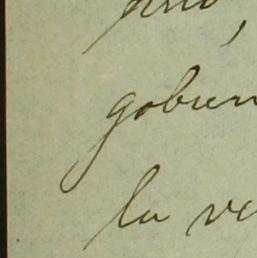 gobier
la ve